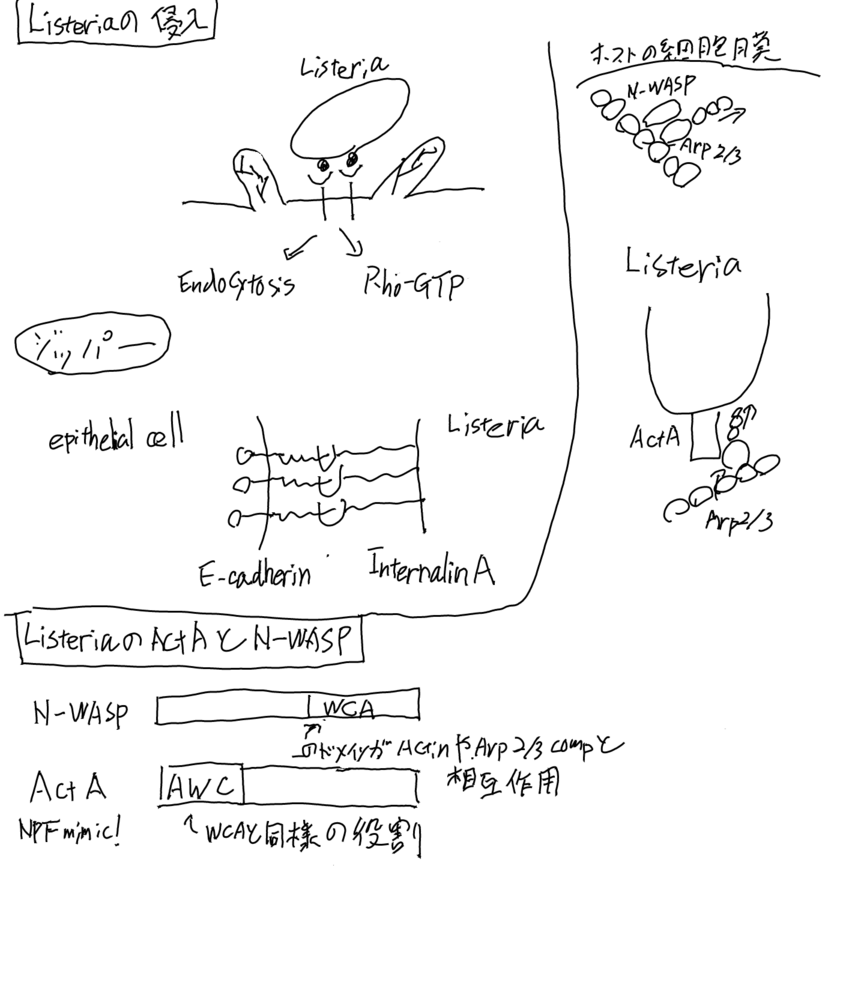 Listeriaの侵入
Listeria
Endocytosis
Rho-GTP
ジッパー
epithelial cell
Listeria
E-cadherin
InternalinA
ホストの細胞膜
N-WASP
Arp2/3
Listeria
ActA
Arp2/3
ListeriaのActAとN-WASP
N-WASP
WCA
このドメインが Actinや Arp2/3 compと
相互作用
ActA
AWC
NPFmimic!
WCAと同様の役割